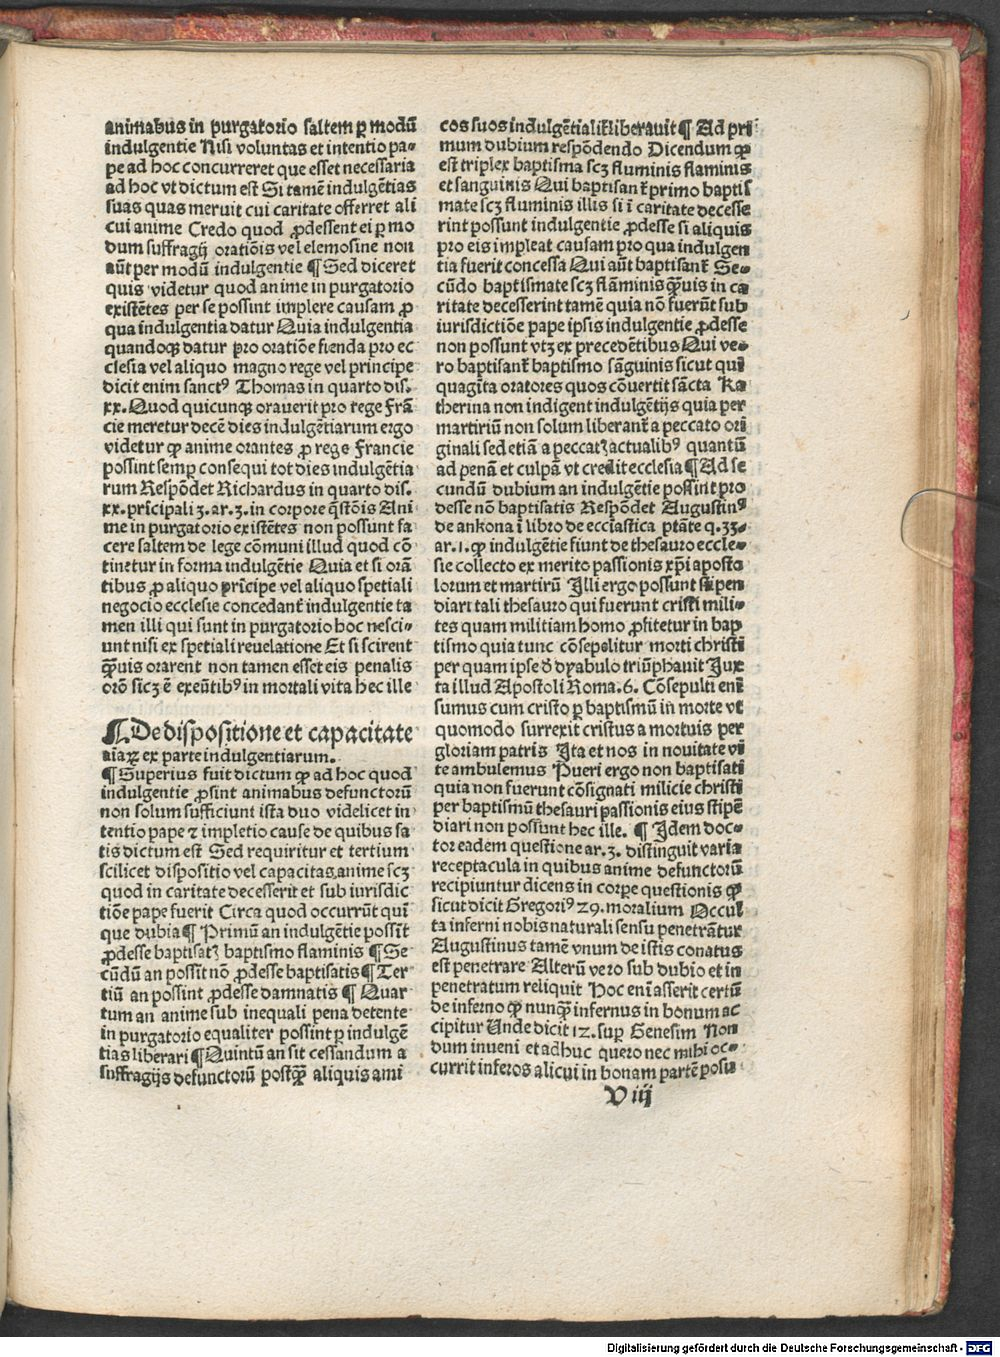 animabus in purgatorio saltem ꝑ modū
indulgentie Nisi voluntas et intentio pa-
pe ad hoc concurreret que esset necessaria
ad hoc vt dictum est Si tamē indulgētias
suas quas meruit cui caritate offerret ali
cui anime Credo quod ꝓdessent ei ꝑ mo
dum suffragij orationis vel elemosine non
aūt per modū indulgentie ¶ Sed diceret
quis videtur quod anime in purgatorio
existētes per se possint implere causam ꝓ
qua indulgentia datur Quia indulgentia
quandoqꝫ datur pro oratiōe fienda pro ec
clesia vel aliquo magno rege vel principe
dicit enim sanctꝰ Thomas in quarto dis.
xx. Quod quicunqꝫ orauerit pro rege Frā
cie meretur decē dies indulgētiarum ergo
videtur ꝙ anime orantes ꝓ rege Francie
possint semꝑ consequi tot dies indulgētia
rum Respōdet Richardus in quarto dis.
xx. prīcipali 3. ar. 3. in corpore q̄stōis Ani
me in purgatorio existētes non possunt fa
cere saltem de lege cōmuni illud quod cō
tinetur in forma indulgētie Quia et si orā
tibus ꝓ aliquo prīcipe vel aliquo spetiali
negocio ecclesie concedant᷑ indulgentie ta
men illi qui sunt in purgatorio hoc nesci-
unt nisi ex spetiali reuelatione Et si scirent
ꝙ̄uis orarent non tamen esset eis penalis
orō sicꝫ ē exeūtibꝰ in mortali vita hec ille
¶ De dispositione et capacitate
aīaꝝ ex parte indulgentiarum.
¶ Superius fuit dictum ꝙ ad hoc quod
indulgentie ꝓsint animabus defunctorū
non solum sufficiunt ista duo videlicet in
tentio pape ⁊ impletio cause de quibus sa
tis dictum est Sed requiritur et tertium
scilicet dispositio vel capacitas anime scꝫ
quod in caritate decesserit et sub iurisdic
tiōe pape fuerit Circa quod occurrūt qui
que dubia ¶ Primū an indulgētie possīt
ꝓdesse baptisatꝫ baptismo flaminis ¶ Se
cūdū an possīt nō ꝓdesse baptisatis ¶ Ter
tiū an possint ꝓdesse damnatis ¶ Quar
tum an anime sub inequali pena detente
in purgatorio equaliter possint ꝑ indulgē
tias liberari ¶ Quintū an sit cessandum a
suffragijs defunctorū postꝙ̄ aliquis ami
cos suos indulgētialit᷑ liberauit ¶ Ad pri
mum dubium respōdendo Dicendum ꝙ
est triplex baptisma scꝫ fluminis flaminis
et sanguinis Qui baptisant᷑ primo baptis
mate scꝫ fluminis illis si ī caritate decesse
rint possunt indulgentie ꝓdesse si aliquis
pro eis impleat causam pro qua indulgen
tia fuerit concessa Qui aūt baptisant᷑ Se-
cūdo baptismate scꝫ flāminis ꝙ̄uis in ca
ritate decesserint tamē quia nō fuerūt sub
iurisdictiōe pape ipsis indulgentie ꝓdesse
non possunt vtꝫ ex precedētibus Qui ve-
ro baptisant᷑ baptismo sāguinis sicut qui
quagīta oratores quos cōuertit sācta Ka
therina non indigent indulgētijs quia per
martiriū non solum liberant᷑ a peccato ori
ginali sed etiā a peccatꝫ actualibꝰ quantū
ad penā et culpā vt credit ecclesia ¶ Ad se
cundū dubium an indulgētie possint pro
desse nō baptisatis Respōdet Augustinꝰ
de ankona ī libro de ecclesiastica ptāte q. 33.
ar. 1. ꝙ indulgētie fiunt de thesauro eccle-
sie collecto ex merito passionis xp̄i aposto
lorum et martirū Illi ergo possunt stipen
diari tali thesauro qui fuerunt cristi mili-
tes quam militiam homo ꝓfitetur in bap
tismo quia tunc cōsepelitur morti christi
per quam ipse d̄ dyabulo triūphauit Jux
ta illud Apostoli Roma. 6. Cōsepulti eni
sumus cum cristo ꝑ baptismū in morte vt
quomodo surrexit cristus a mortuis per
gloriam patris Ita et nos in nouitate vi
te ambulemus Pueri ergo non baptisati
quia non fuerunt cōsignati milicie christi
per baptismū thesauri passionis eius stipē
diari non possunt hec ille. ¶ Idem doc-
tor eadem questione ar. 3. distinguit varia
receptacula in quibus anime defunctorū
recipiuntur dicens in corpe questionis ꝙ
sicut dicit Gregoriꝰ 29. moralium Occul
ta inferni nobis naturali sensu penetrātur
Augustinus tamē vnum de istis conatus
est penetrare Alterū vero sub dubio et in
penetratum reliquit Hoc enī asserit certū
de inferno ꝙ nunꝙ̄ infernus in bonum ac
cipitur Unde dicit 12. suꝑ Genesim Non
dum inueni et adhuc quero nec mihi oc-
currit inferos alicui in bonam partē posu
V iij
Digitalisierung gefördert durch die Deutsche Forschungsgemeinschaft - DFG